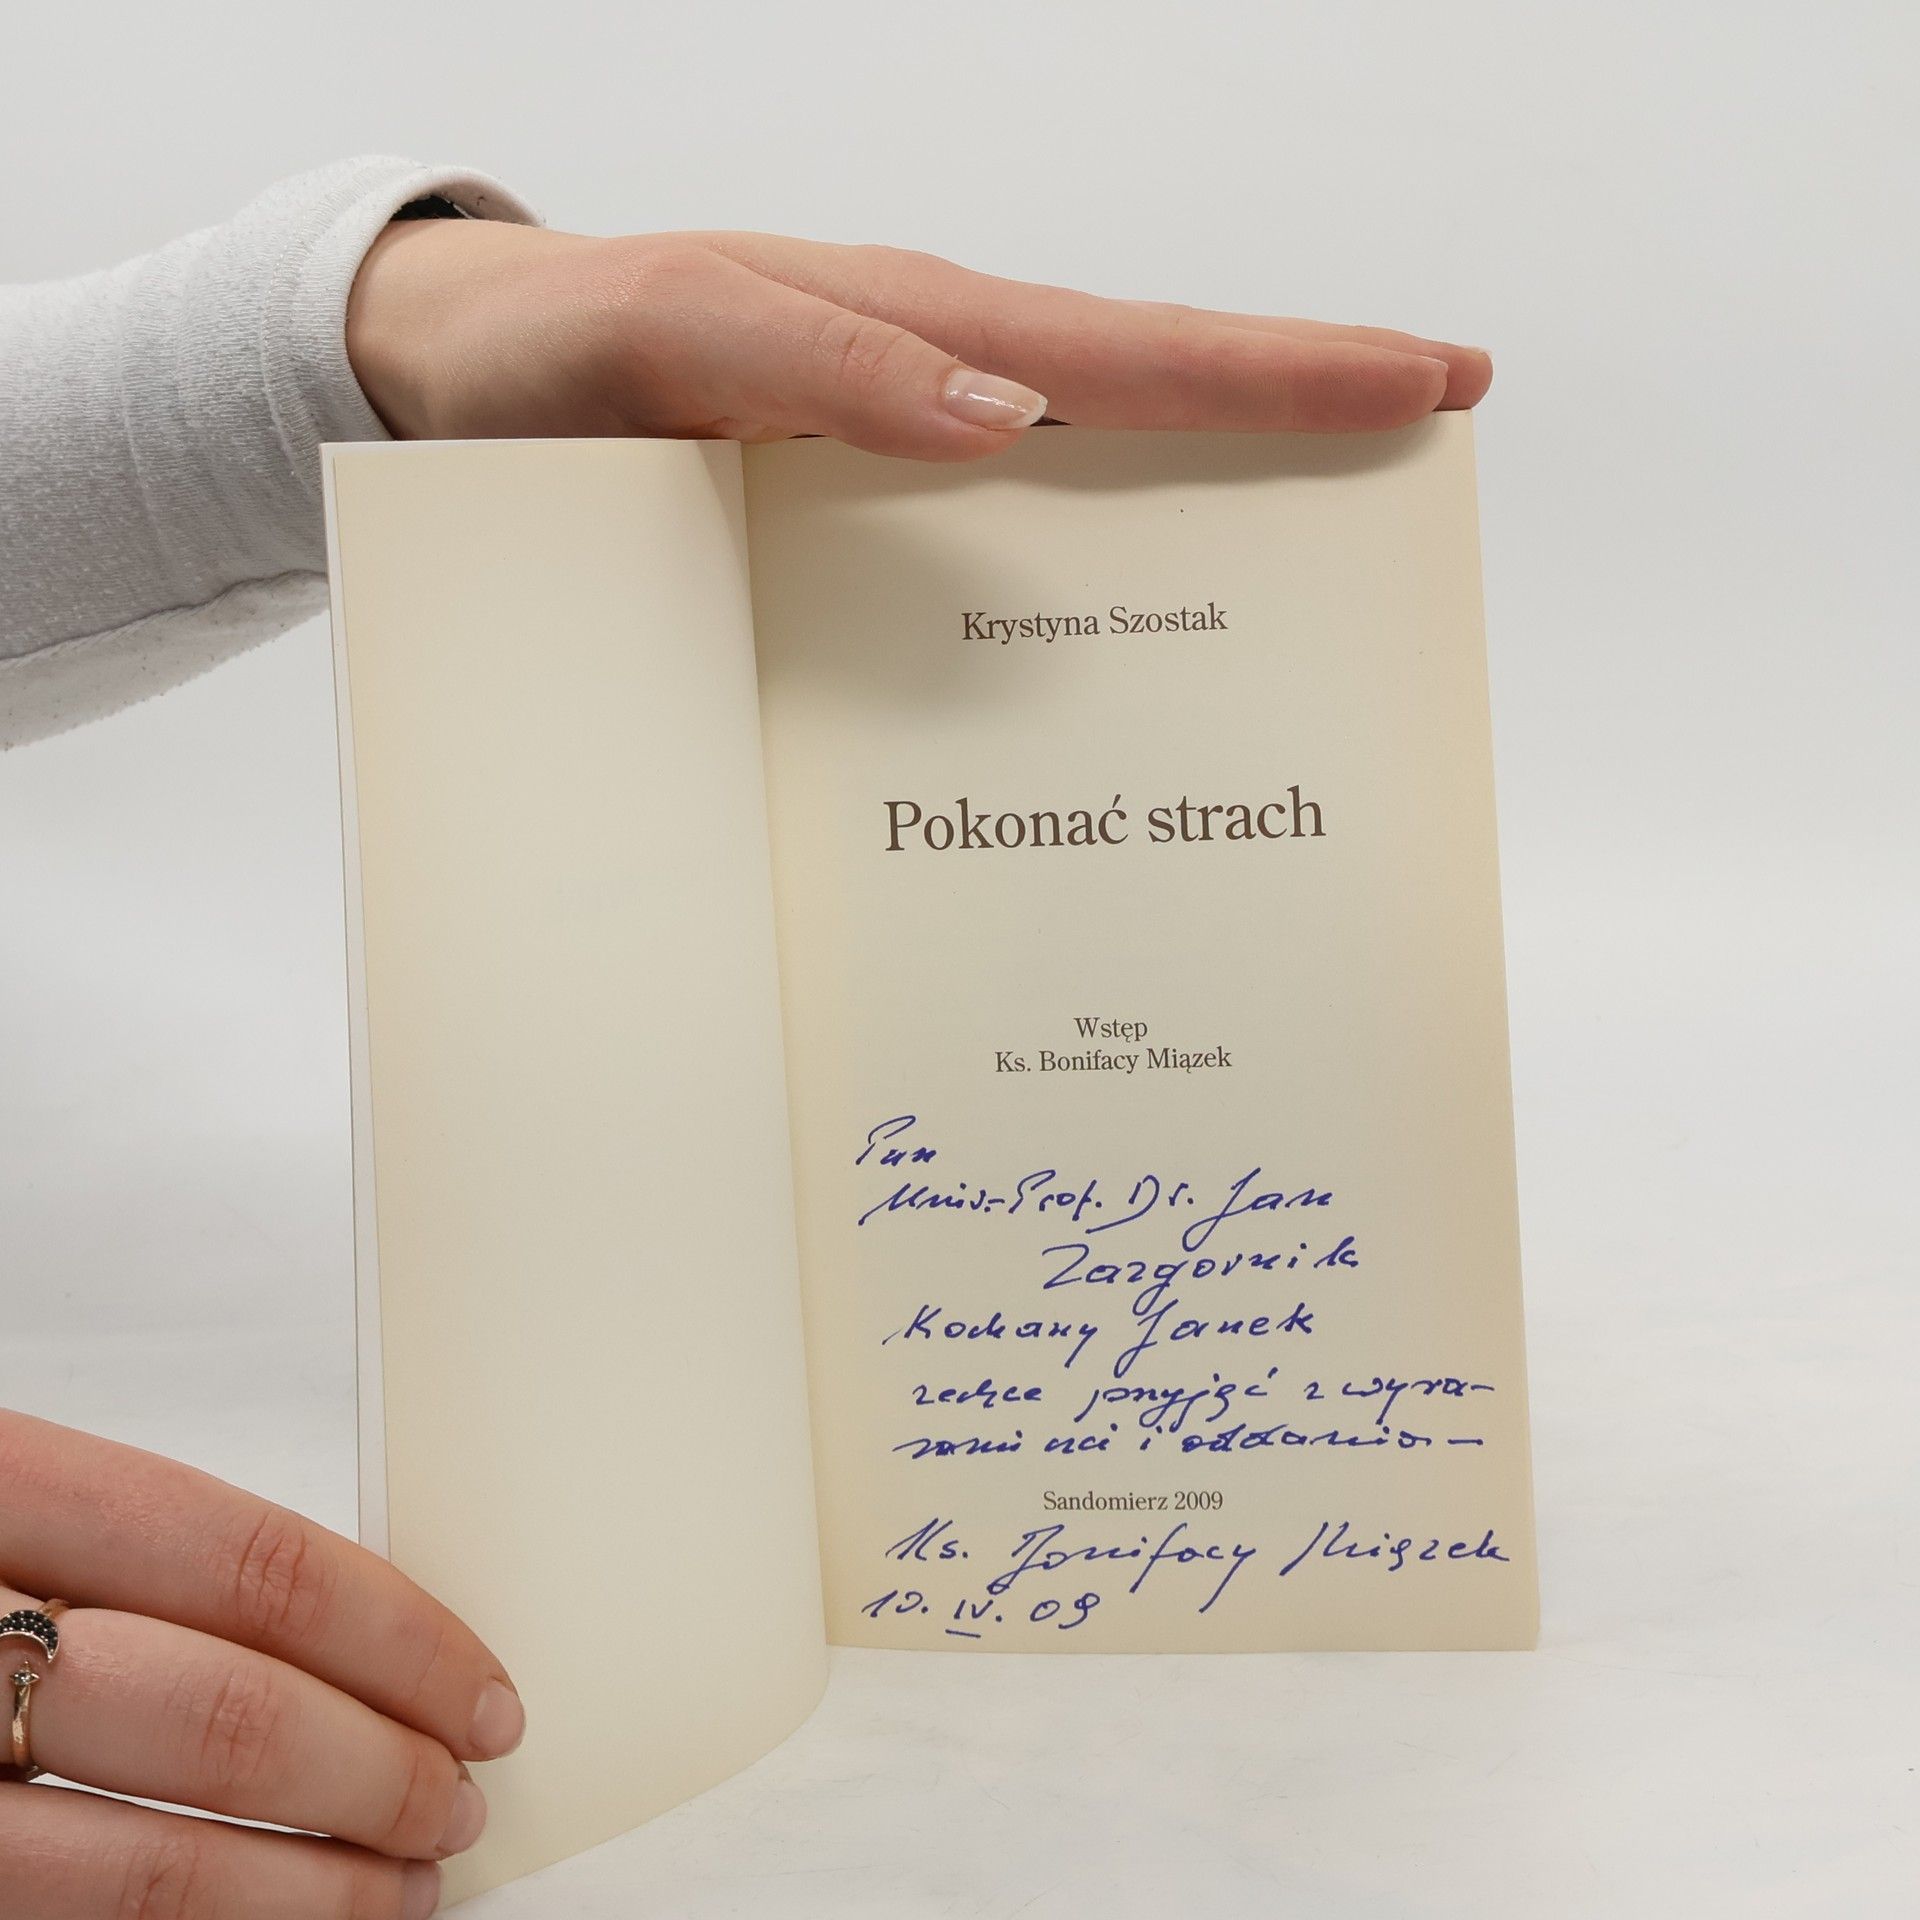 Krystyna Szostak
Pokonać strach
Wstęp
Ks. Bonifacy Miązek
Pan
Univ.-Prof. Dr. Jan
Zazgornik
Kochany Janek
zechce przyjąć z wyra-
zami czci i oddania –
Sandomierz 2009
Ks. Bonifacy Miązek
10. IV. 09